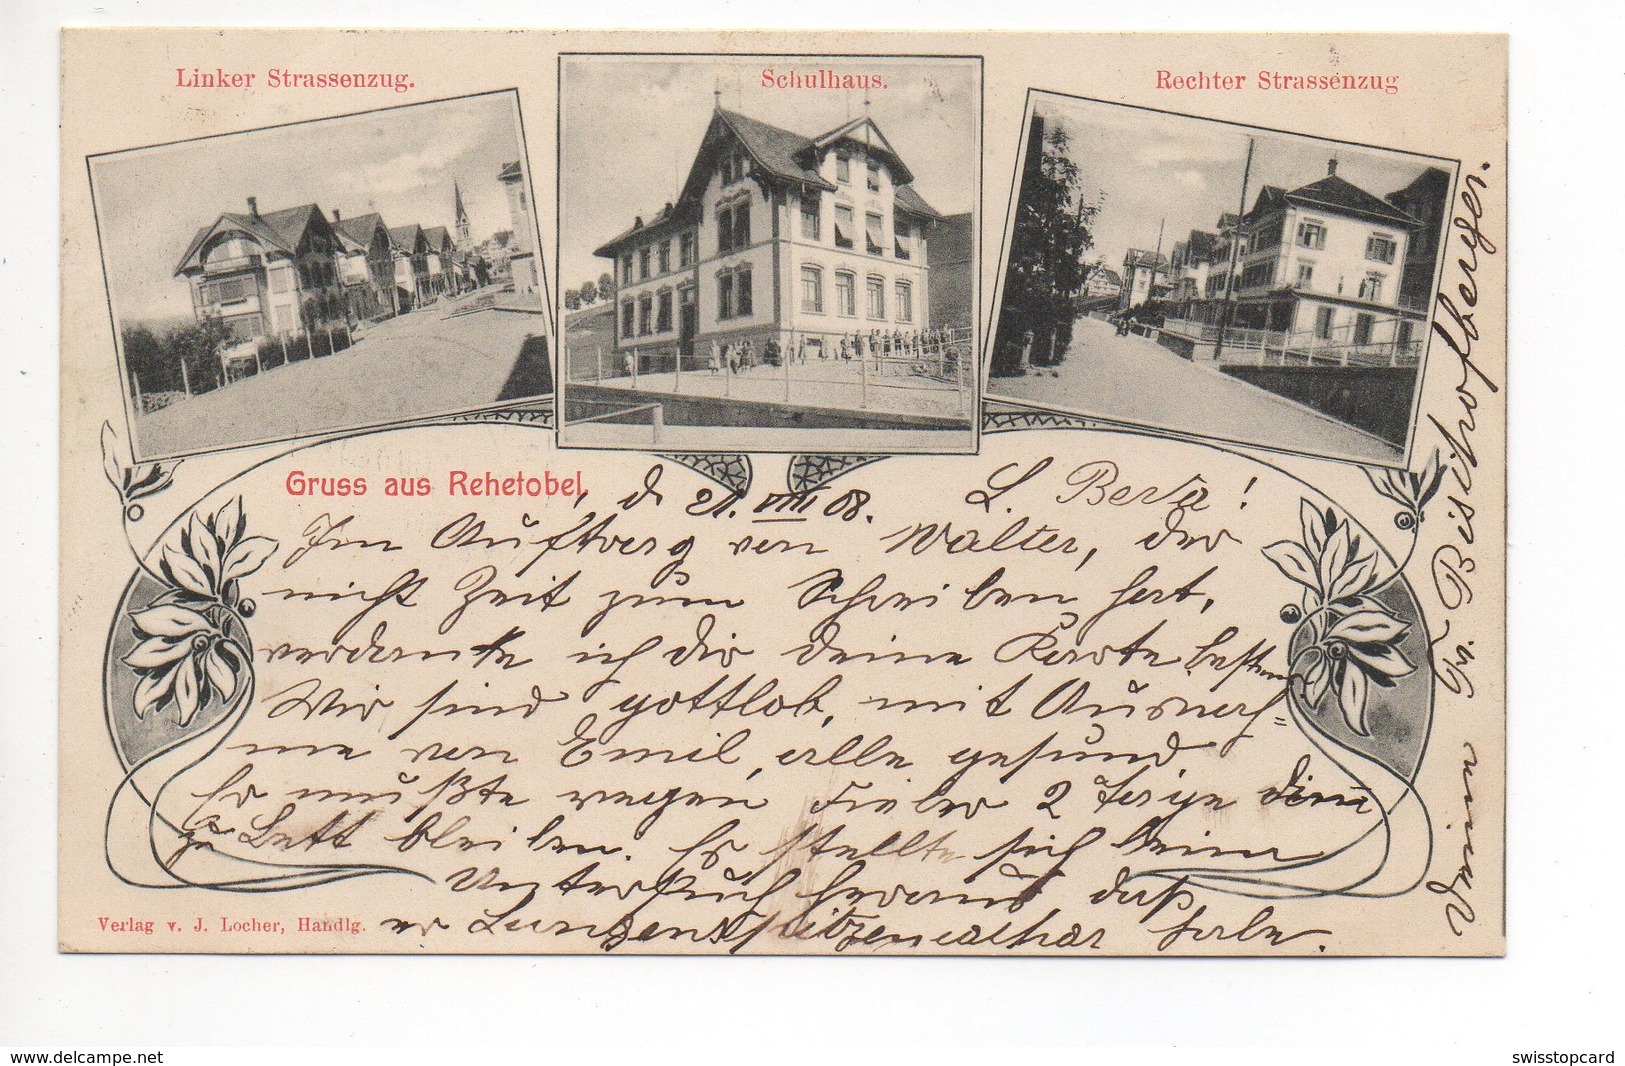 Linker Strassenzug.
Schulhaus.
Rechter Strassenzug
Gruss aus Rehetobel, d. 21. VIII 08. L. Berta!
Im Auftrag von Walter, der
nicht Zeit zum Schreiben hat,
verdanke ich dir deine Karte bestens
Wir sind gottlob, mit Ausnah=
me von Emil, alle gesund
Er mußte wegen Fieber 2 Tage
zu Bett bleiben. Es stellte sich beim
Untersuch heraus daß
er Lungenspitzencathar habe.
Verlag v. J. Locher, Handlg.
Bischofberger.
www.delcampe.net
swisstopcard